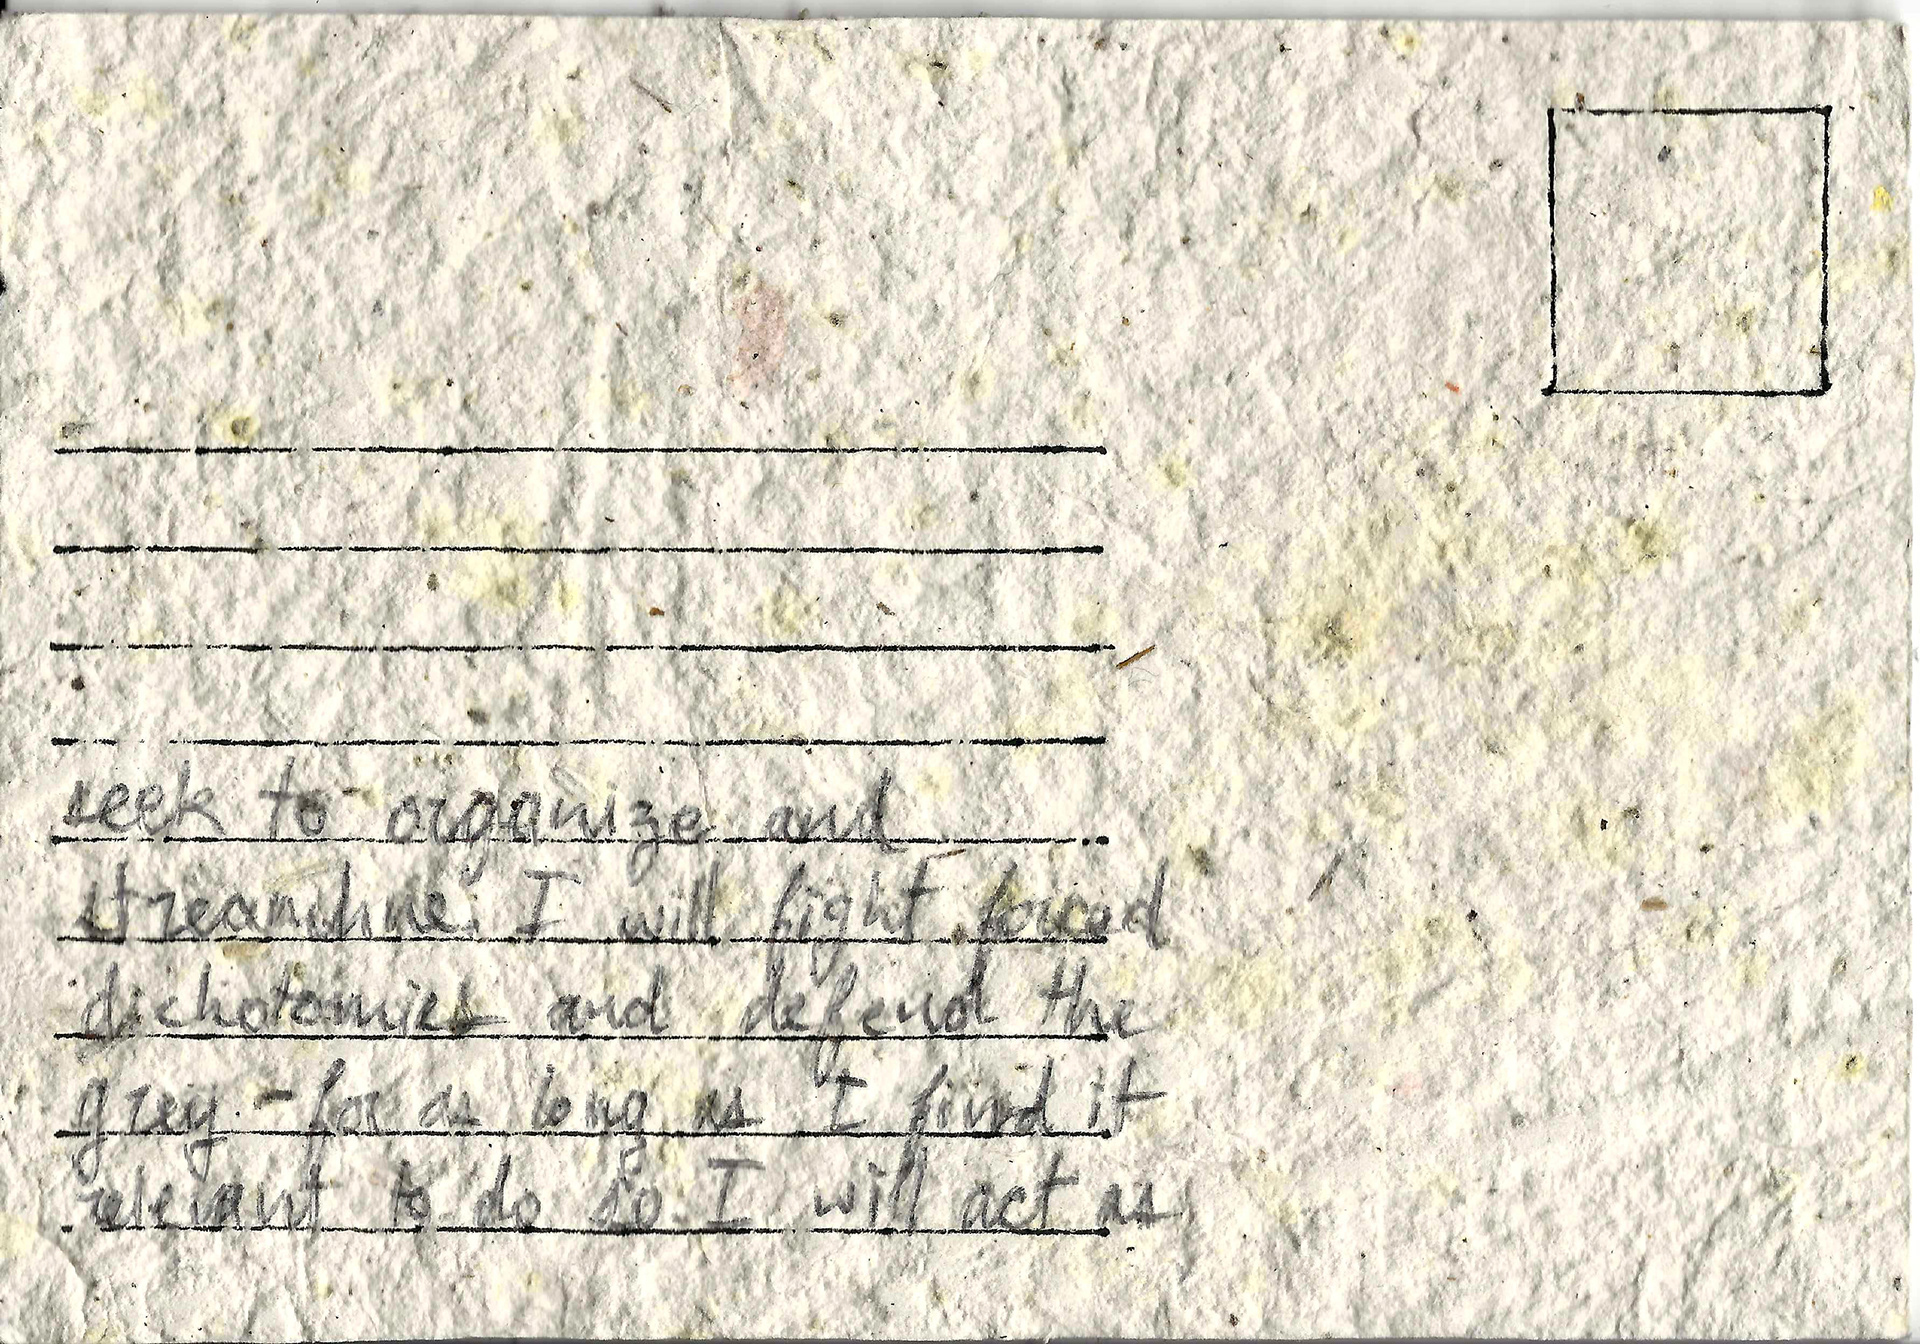 seek to organize and
streamline. I will fight forced
dichotomies and defend the
grey - for as long as I find it
relevant to do so I will act as